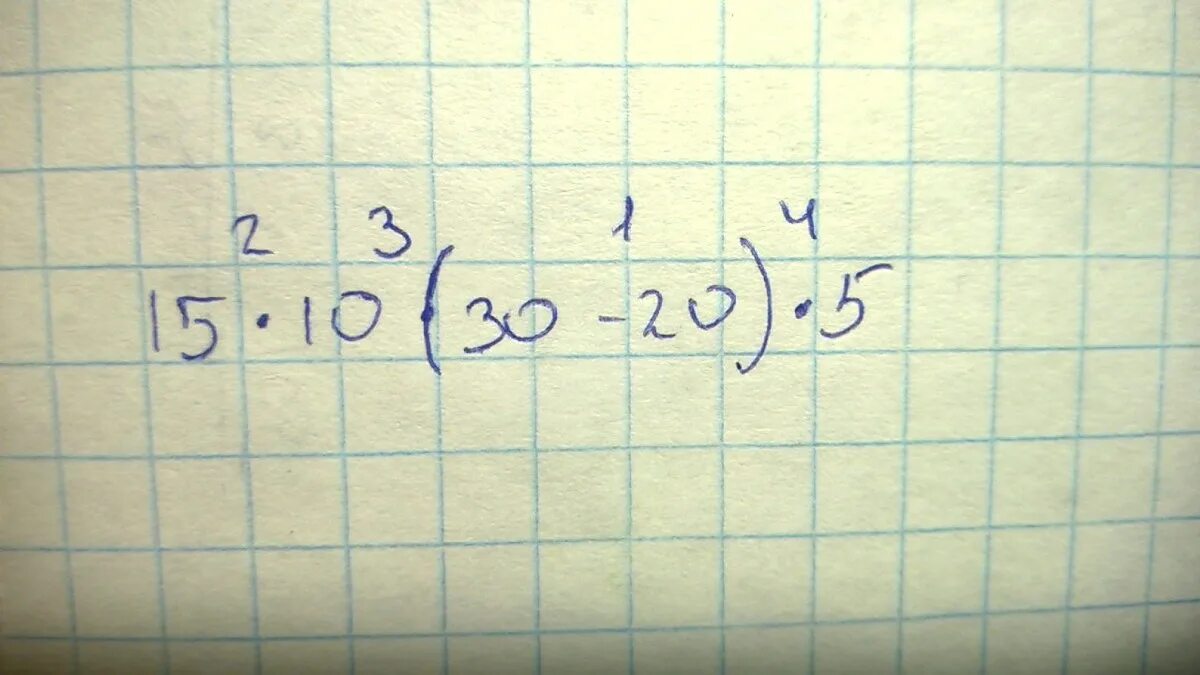 2 3 1 4
15·10·(30-20)·5